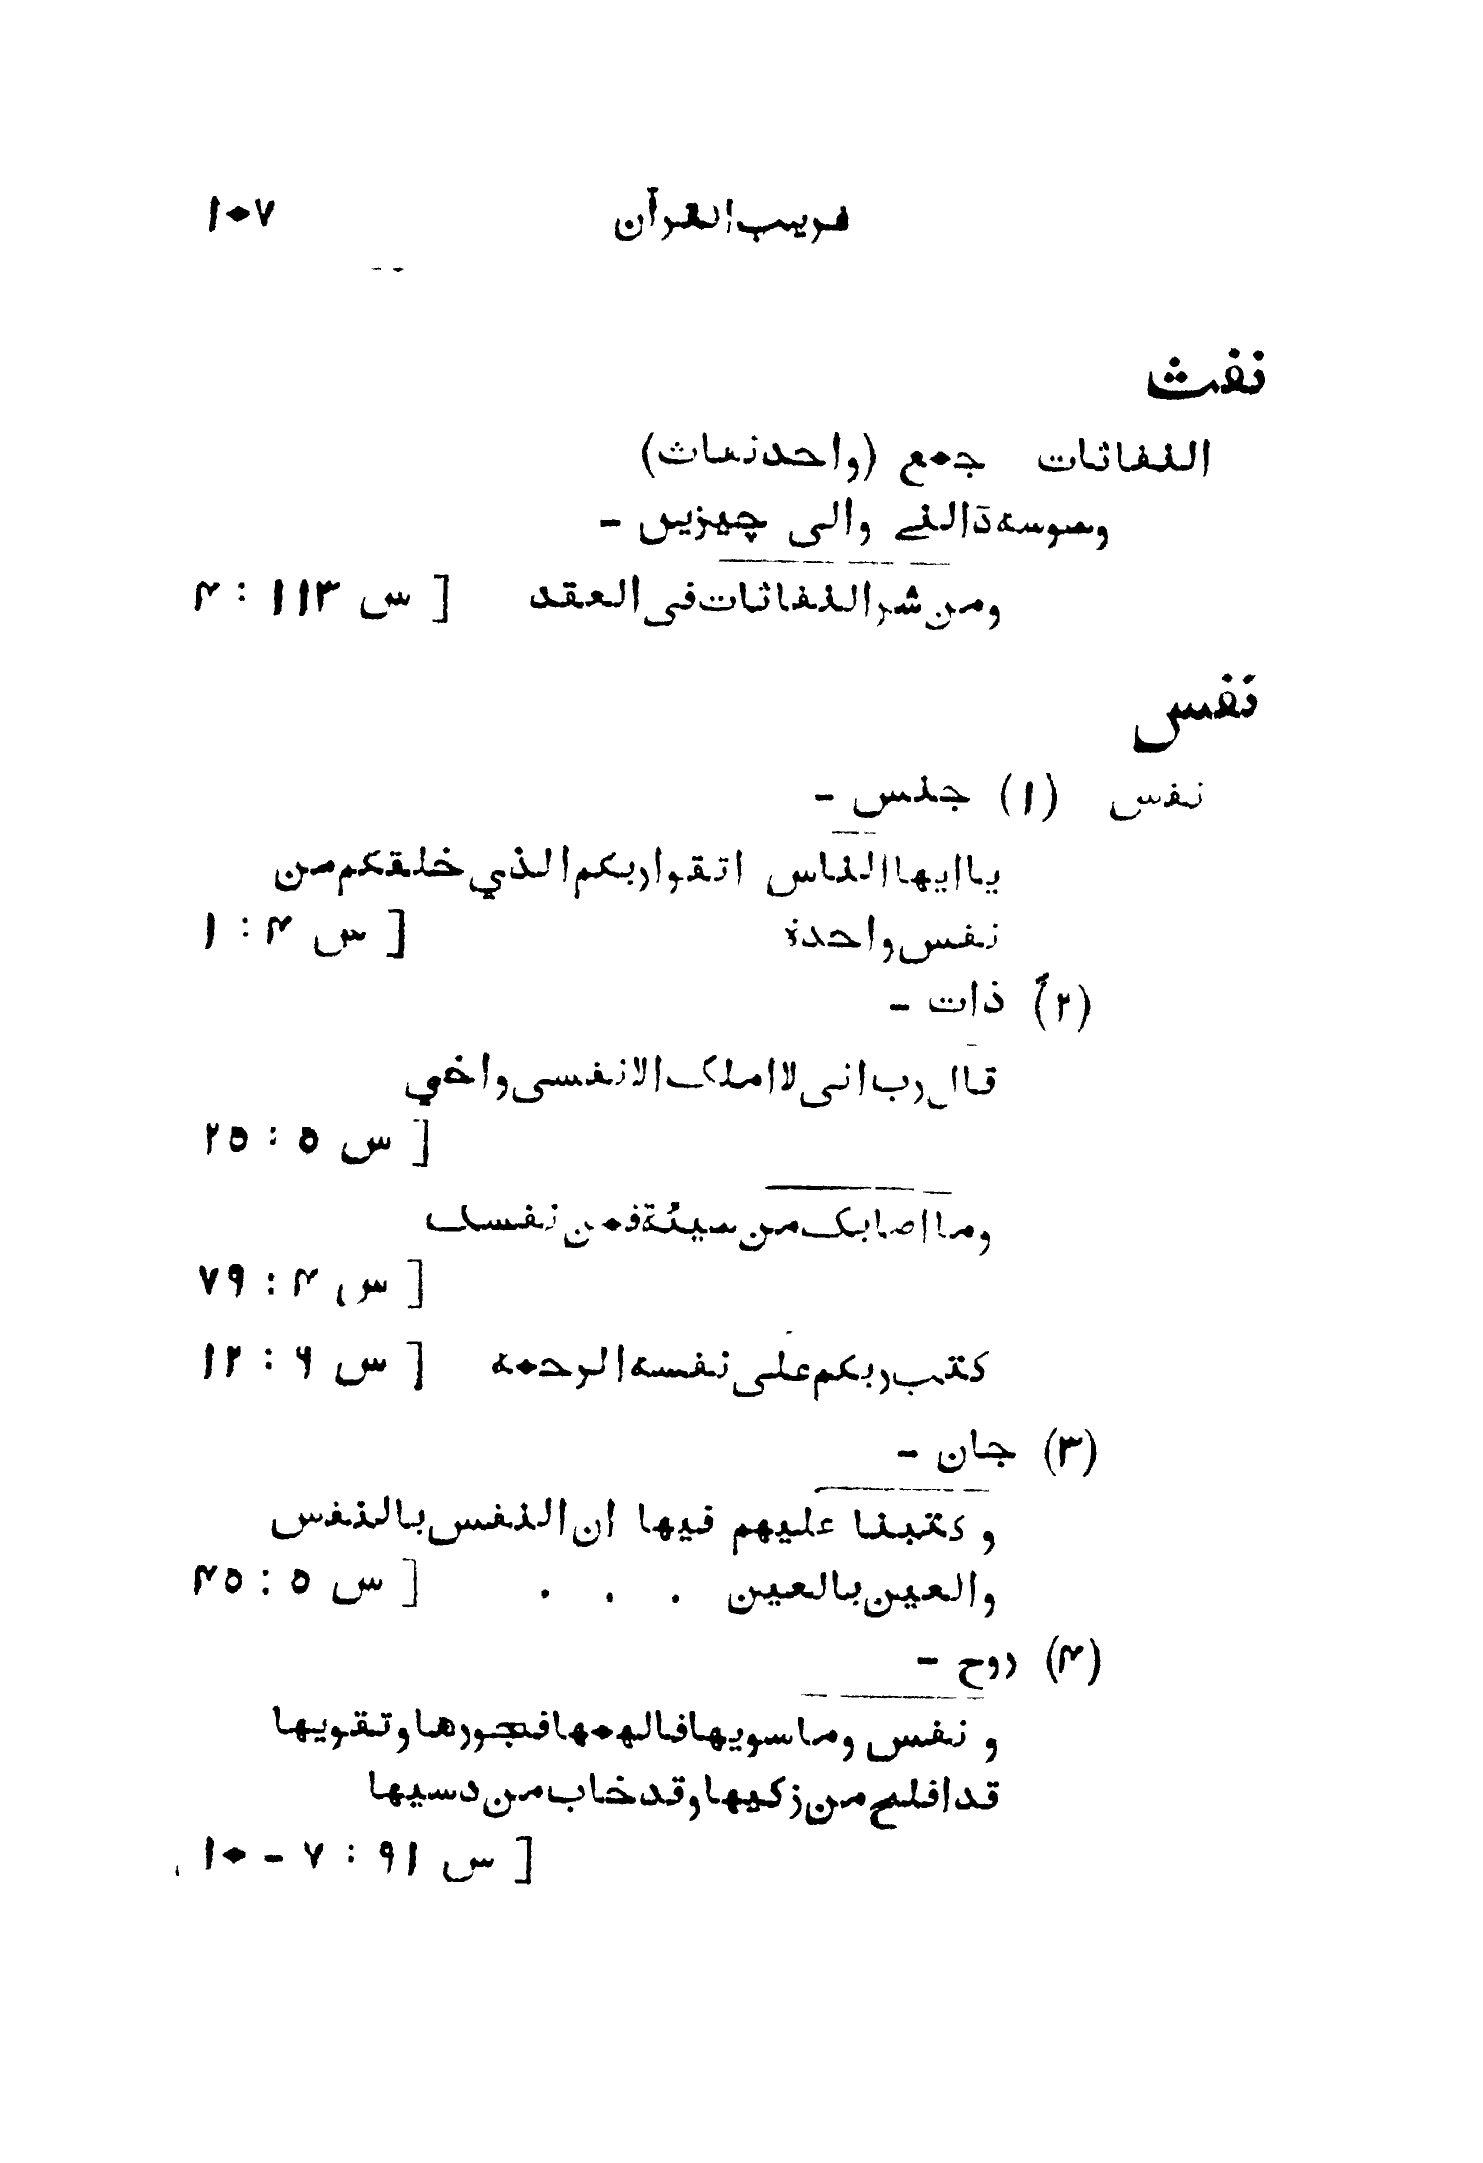 غریب القرآن ۱۰۷
نفث
النفاثات جمع (واحد نفاث)
وسوسہ ڈالنے والی چیزیں -
ومن شر النفاثات فی العقد [ س ۱۱۳ : ۴
نفس
نفس (۱) جنس -
یا ایھا الناس اتقوا ربکم الذي خلقکم من
نفس واحدة [ س ۴ : ۱
(۲) ذات -
قال رب انی لا املک الا نفسی واخي
[ س ۵ : ۲۵
وما اصابک من سیئة فمن نفسک
[ س ۴ : ۷۹
کتب ربکم علی نفسه الرحمة [ س ۶ : ۱۲
(۳) جان -
و کتبنا علیهم فیها ان النفس بالنفس
والعین بالعین . . . [ س ۵ : ۴۵
(۴) روح -
و نفس وما سویها فالهمها فجورها و تقویها
قد افلح من زکیها وقد خاب من دسیها
[ س ۹۱ : ۷ - ۱۰